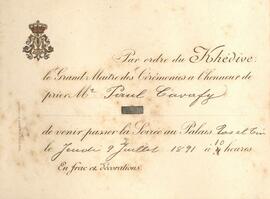 Par ordre du Khédive
le Grand Maître des Cérémonies a l'honneur de
prier Mr Paul Cavafy
de venir passer la Soirée au Palais Ras el Tin
le Jeudi 9 Juillet 1891 à heures
En frac et décorations.